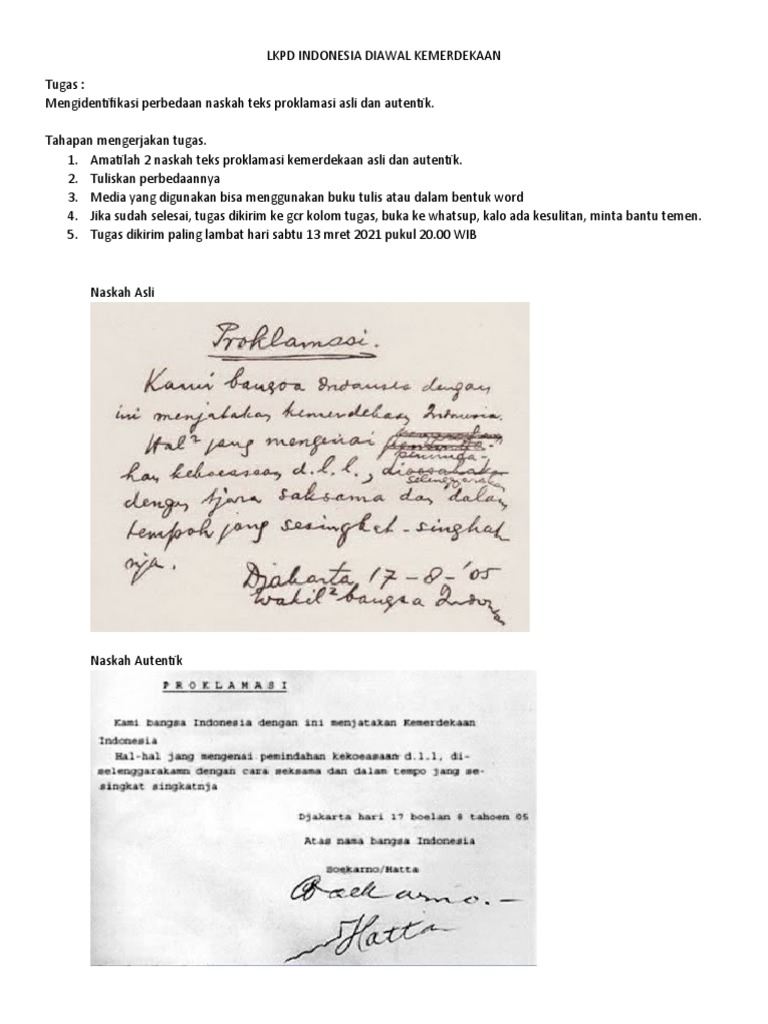 LKPD INDONESIA DIAWAL KEMERDEKAAN
Tugas :
Mengidentifikasi perbedaan naskah teks proklamasi asli dan autentik.
Tahapan mengerjakan tugas.
1. Amatilah 2 naskah teks proklamasi kemerdekaan asli dan autentik.
2. Tuliskan perbedaannya
3. Media yang digunakan bisa menggunakan buku tulis atau dalam bentuk word
4. Jika sudah selesai, tugas dikirim ke gcr kolom tugas, buka ke whatsup, kalo ada kesulitan, minta bantu temen.
5. Tugas dikirim paling lambat hari sabtu 13 mret 2021 pukul 20.00 WIB
Naskah Asli
Proklamasi.
Kami bangsa Indonesia dengan
ini menjatakan kemerdekaan Indonesia.
Hal² jang mengenai
peminda-
han kekoeasaan d.l.l., dioesahakan
selenggarakan
dengan tjara saksama dan dalam
tempoh jang sesingkat-singkat
nja.
Djakarta, 17-8-'05
Wakil² bangsa Indonesia
Naskah Autentik
PROKLAMASI
Kami bangsa Indonesia dengan ini menjatakan Kemerdekaan
Indonesia
Hal-hal jang mengenai pemindahan kekoeasaan d.l.l, di-
selenggarakamn dengan cara seksama dan dalam tempo jang se-
singkat singkatnja
Djakarta hari 17 boelan 8 tahoen 05
Atas nama bangsa Indonesia
Soekarno/Hatta
Soekarno.-
Hatta